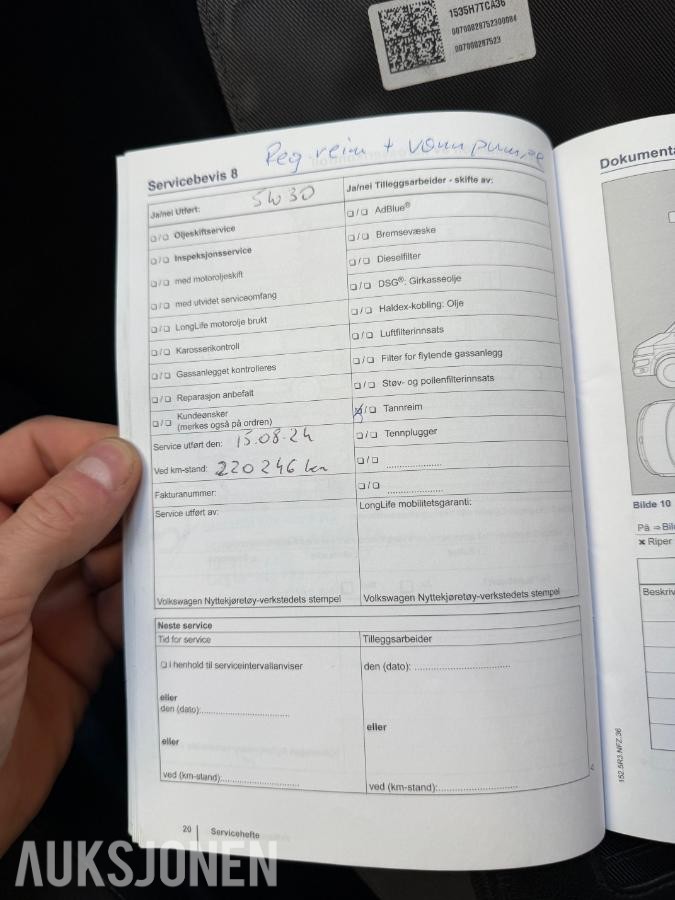 1535H7TCA36
0070002875230​0084
007000287523
Reg.reim + Vannpumpe
Servicebevis 8
Ja/nei Utført: 5W30
❏/❏ Oljeskiftservice
❏/❏ Inspeksjonsservice
❏/❏ med motoroljeskift
❏/❏ med utvidet serviceomfang
❏/❏ LongLife motorolje brukt
❏/❏ Karosserikontroll
❏/❏ Gassanlegget kontrolleres
❏/❏ Reparasjon anbefalt
❏/❏ Kundeønsker
(merkes også på ordren)
Service utført den: 15.08.24
Ved km-stand: 220246 km
Fakturanummer:
Service utført av:
Volkswagen Nyttekjøretøy-verkstedets stempel
Ja/nei Tilleggsarbeider - skifte av:
❏/❏ AdBlue®
❏/❏ Bremsevæske
❏/❏ Dieselfilter
❏/❏ DSG®: Girkasseolje
❏/❏ Haldex-kobling: Olje
❏/❏ Luftfilterinnsats
❏/❏ Filter for flytende gassanlegg
❏/❏ Støv- og pollenfilterinnsats
☒/❏ Tannreim
❏/❏ Tennplugger
❏/❏ ....................
❏/❏ ....................
LongLife mobilitetsgaranti:
Volkswagen Nyttekjøretøy-verkstedets stempel
Neste service
Tid for service
❏ i henhold til serviceintervallanviser
eller
den (dato):..............................
eller
ved (km-stand):..........................
Tilleggsarbeider
den (dato): ..............................
eller
ved (km-stand):..........................
20 Servicehefte
Dokumenta
Bilde 10
På ⇒ Bil
✖ Riper
Beskriv
152.5R3.NFZ.36
AUKSJONEN